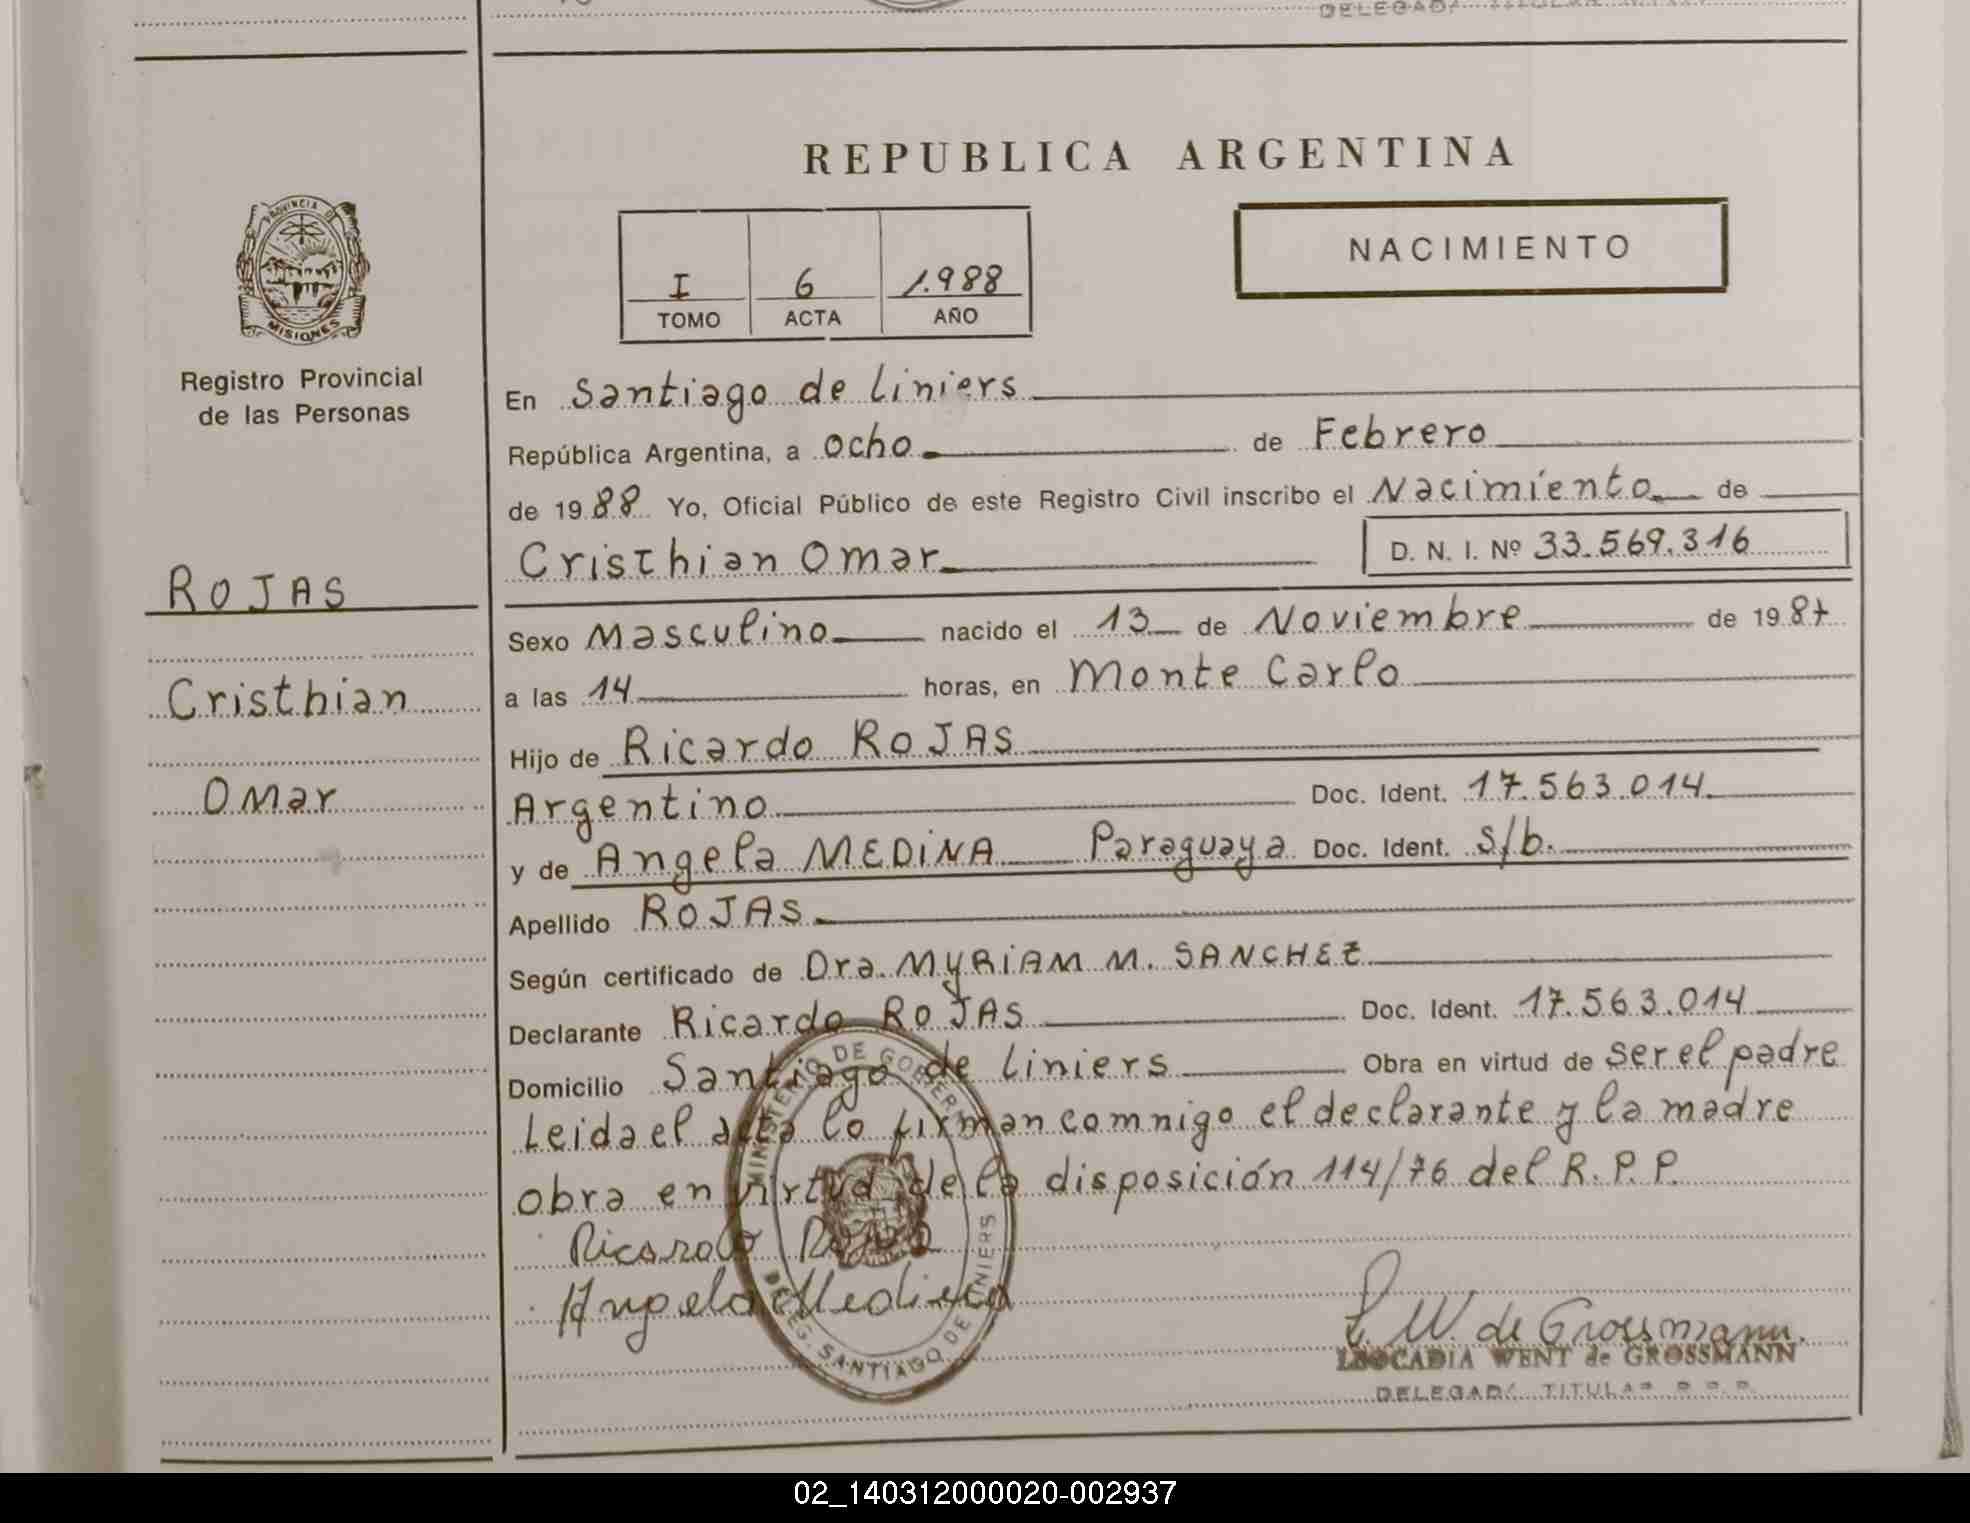 DELEGADA TITULAR
PROVINCIA DE
MISIONES
Registro Provincial
de las Personas
ROJAS
Cristhian
Omar
REPUBLICA ARGENTINA
I 6 1.988
TOMO ACTA AÑO
NACIMIENTO
En Santiago de Liniers
República Argentina, a ocho de Febrero
de 1988 Yo, Oficial Público de este Registro Civil inscribo el Nacimiento de
Cristhian Omar D. N. I. Nº 33.569.316
Sexo Masculino nacido el 13 de Noviembre de 1987
a las 14 horas, en Monte Carlo
Hijo de Ricardo ROJAS
Argentino Doc. Ident. 17.563.014.
y de Angela MEDINA Paraguaya Doc. Ident. s/b.
Apellido ROJAS
Según certificado de Dra. MYRIAM M. SANCHEZ
Declarante Ricardo ROJAS Doc. Ident. 17.563.014
Domicilio Santiago de Liniers Obra en virtud de ser el padre
Leida el acta lo firman comnigo el declarante y la madre
obra en virtud de la disposición 114/76 del R.P.P.
Ricardo Rojas
Angela Medina
MINISTERIO DE GOBIERNO
DELEG. SANTIAGO DE LINIERS
L. W. de Grossmann.
LEOCADIA WENT de GROSSMANN
DELEGADA TITULAR R.P.P.
02_140312000020-002937